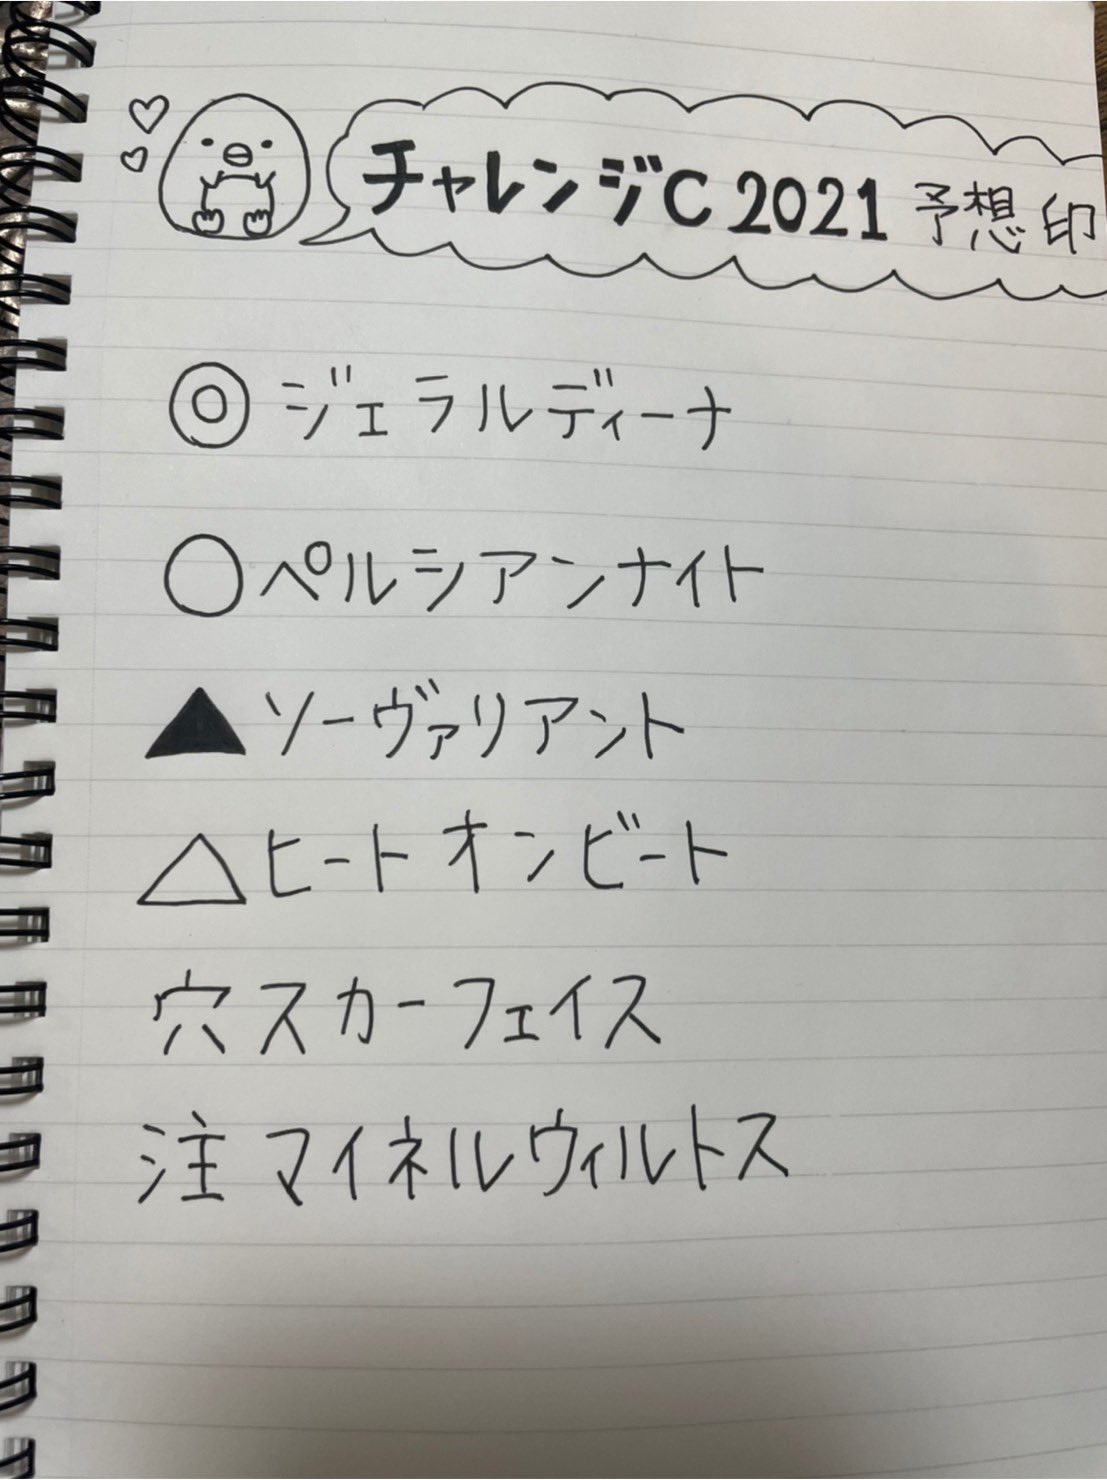 チャレンジC 2021 予想印
◎ジェラルディーナ
○ペルシアンナイト
▲ソーヴァリアント
△ヒートオンビート
穴スカーフェイス
注マイネルウィルトス